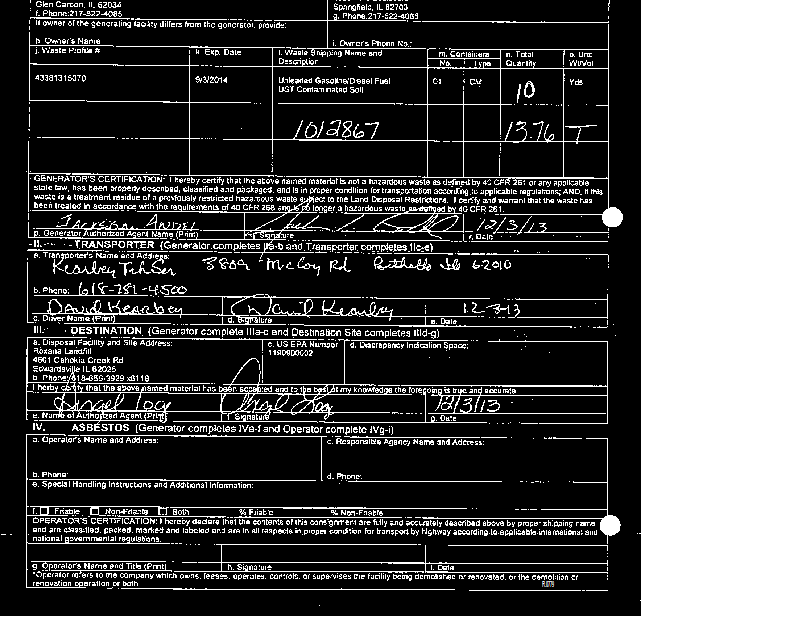 Glen Carbon, IL 62034
Springfield, IL 62703
f. Phone: 217-522-4085
g. Phone: 217-522-4085
If owner of the generating facility differs from the generator, provide:
h. Owner's Name
i. Owner's Phone No.:
j. Waste Profile # k. Exp. Date l. Waste Shipping Name and Description m. Containers No. Type n. Total Quantity o. Unit Wt/Vol
43381315070 9/3/2014 Unleaded Gasoline/Diesel Fuel UST Contaminated Soil 01 CM 10 Yds
1012867 13.76 T
GENERATOR'S CERTIFICATION: I hereby certify that the above named material is not a hazardous waste as defined by 40 CFR 261 or any applicable
state law, has been properly described, classified and packaged, and is in proper condition for transportation according to applicable regulations; AND, if this
waste is a treatment residue of a previously restricted hazardous waste subject to the Land Disposal Restrictions. I certify and warrant that the waste has
been treated in accordance with the requirements of 40 CFR 268 and is no longer a hazardous waste as defined by 40 CFR 261.
12/3/13
p. Generator Authorized Agent Name (Print) q. Signature r. Date
II. TRANSPORTER (Generator completes IIa-b and Transporter completes IIc-e)
a. Transporter's Name and Address:
Kearbey 3809 McCoy Rd Bethalto Il 62010
b. Phone: 618-781-4500
David Kearbey David Kearbey 12-3-13
c. Driver Name (Print) d. Signature e. Date
III. DESTINATION (Generator complete IIIa-c and Destination Site completes IIId-g)
a. Disposal Facility and Site Address: c. US EPA Number d. Discrepancy Indication Space:
Roxana Landfill 1190900002
4601 Cahokia Creek Rd
Edwardsville IL 62025
b. Phone: 618-656-3929 x8118
I hereby certify that the above named material has been accepted and to the best of my knowledge the foregoing is true and accurate
12/3/13
e. Name of Authorized Agent (Print) f. Signature g. Date
IV. ASBESTOS (Generator complete IVa-f and Operator complete IVg-i)
a. Operator's Name and Address: c. Responsible Agency Name and Address:
b. Phone: d. Phone:
e. Special Handling Instructions and Additional Information:
f. Friable Non-Friable Both % Friable % Non-Friable
OPERATOR'S CERTIFICATION: I hereby declare that the contents of this consignment are fully and accurately described above by proper shipping name
and are classified, packed, marked and labeled and are in all respects in proper condition for transport by highway according to applicable international and
national governmental regulations.
g. Operator's Name and Title (Print) h. Signature i. Date
*Operator refers to the company which owns, leases, operates, controls, or supervises the facility being demolished or renovated, or the demolition or
renovation operation or both